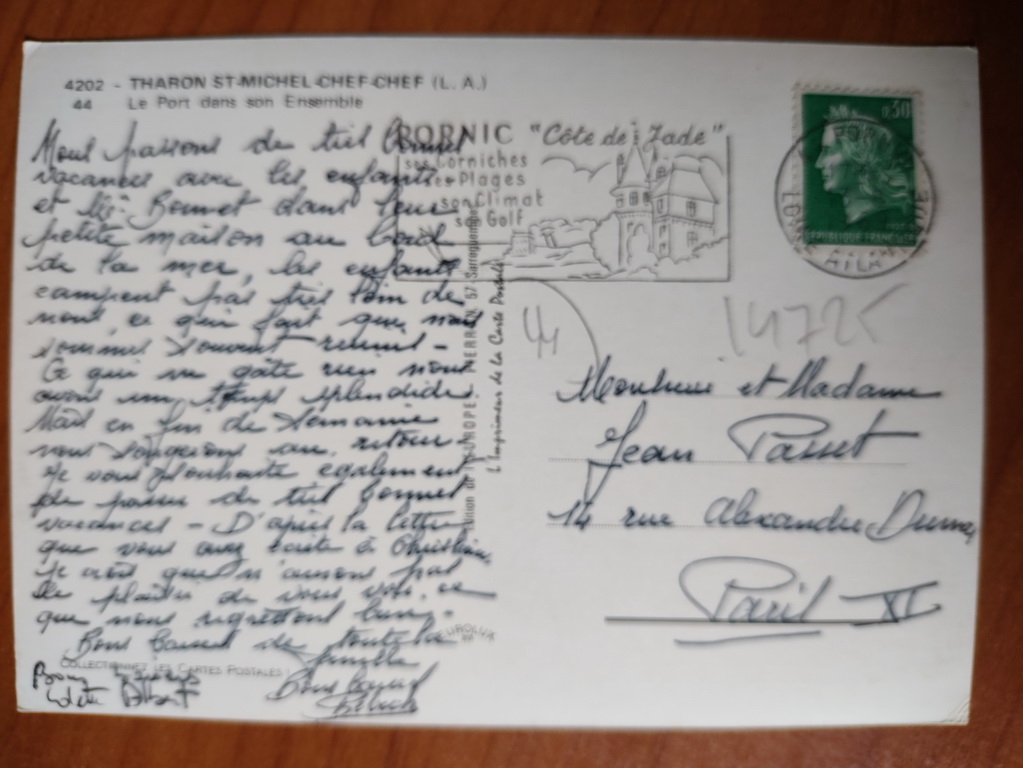 4202 - THARON ST-MICHEL-CHEF-CHEF (L. A.)
44 Le Port dans son Ensemble
Nous passons de très bonnes
vacances avec les enfants
et les Bonnet dans leur
petite maison au bord
de la mer, les enfants
campent pas très loin de
nous, ce qui fait que nous
sommes souvent réunis -
Ce qui ne gâte rien nous
avons un temps splendide
Mais en fin de semaine
nous songerons au retour -
Je vous souhaite également
de passer de très bonnes
vacances - D'après la lettre
que vous avez écrite à Christian,
je crois que n'aurons pas
le plaisir de vous voir, ce
que nous regrettons bien.
Bons baisers de toute la
famille
Bons baisers
Bons baisers
Albert
COLLECTIONNEZ LES CARTES POSTALES
PIERRON 57-Sarreguemines
L'Imprimeur de la Carte Postale
PORNIC "Côte de Jade"
ses Corniches
ses Plages
son Climat
son Golf
0,30
REPUBLIQUE FRANCAISE
44
1472
Monsieur et Madame
Jean Passet
14 rue Alexandre Dumas
Paris XI